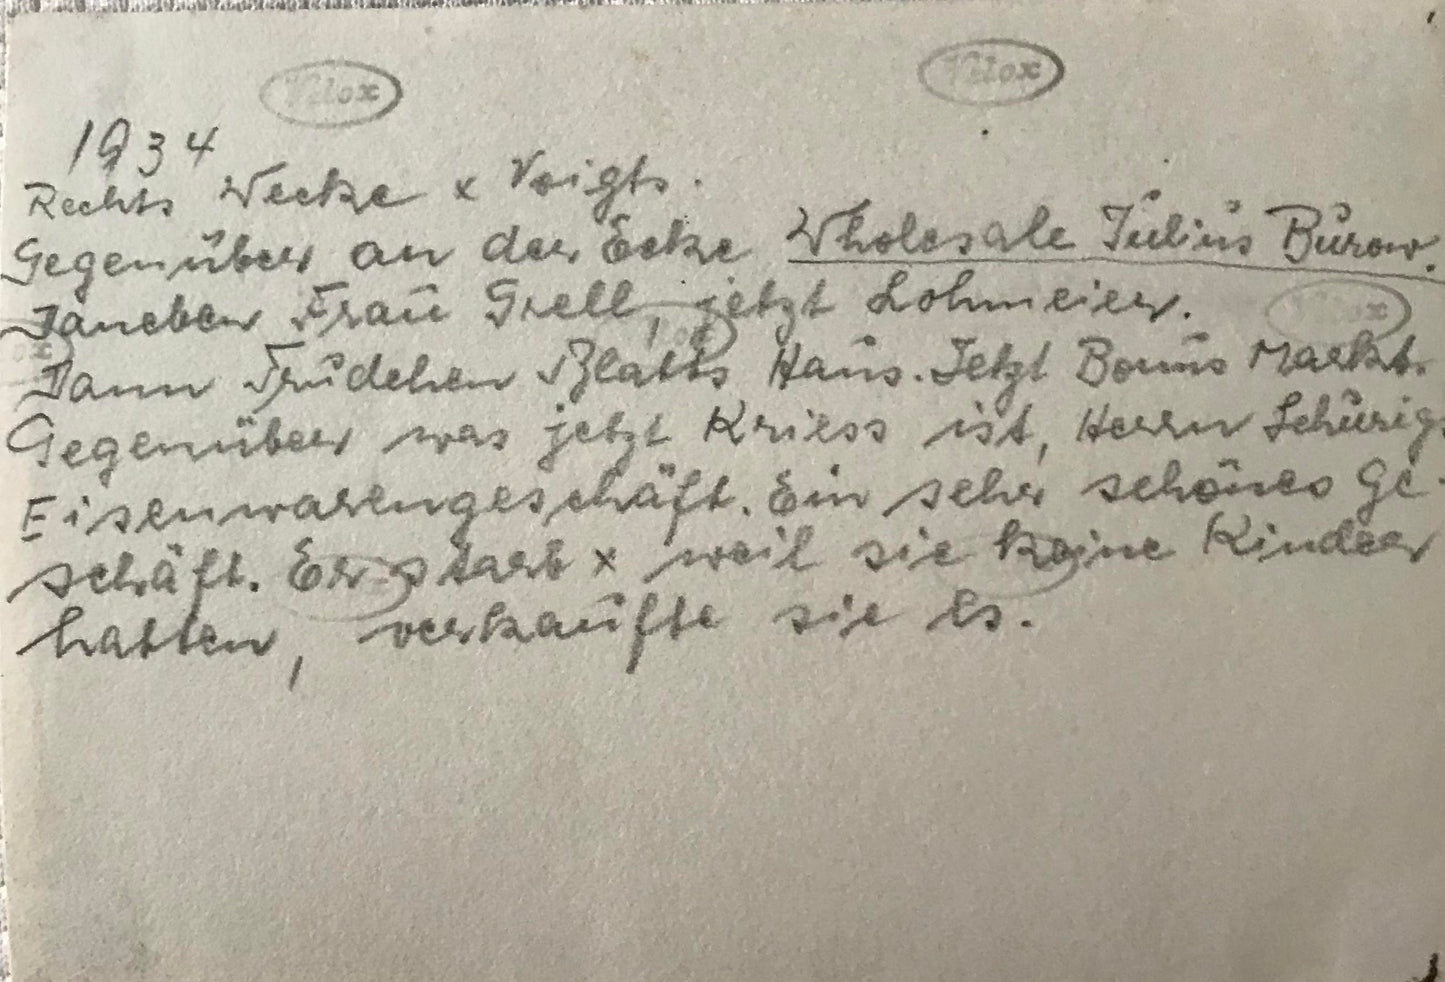 Velox Velox
1934
Rechts Wecke x Voigts.
Gegenüber an der Ecke Wholesale Julius Burow.
Daneben Frau Grell, jetzt Lohmeier. Velox
Dann Trudchen Blatts Haus. Jetzt Bonus Markt.
Gegenüber was jetzt Kriess ist, Herrn Schurig.
Eisenwarengeschäft. Ein sehr schönes Ge-
schäft. Er starb x weil sie keine Kinder
hatten, verkaufte sie Es.